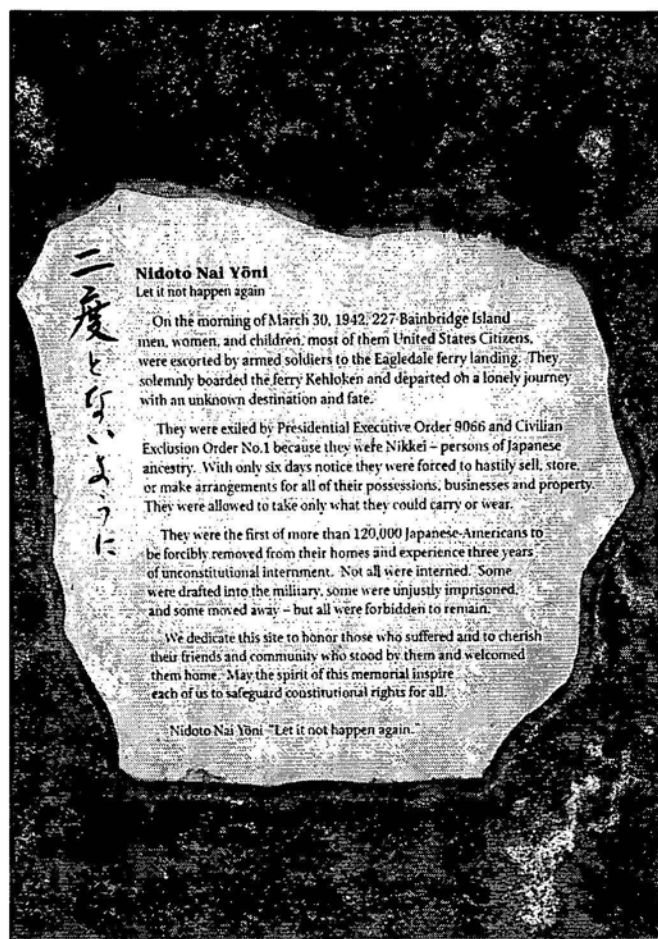 二度とないように
Nidoto Nai Yōni
Let it not happen again
On the morning of March 30, 1942, 227 Bainbridge Island
men, women, and children, most of them United States Citizens,
were escorted by armed soldiers to the Eagledale ferry landing. They
solemnly boarded the ferry Kehloken and departed on a lonely journey
with an unknown destination and fate.
They were exiled by Presidential Executive Order 9066 and Civilian
Exclusion Order No.1 because they were Nikkei – persons of Japanese
ancestry. With only six days notice they were forced to hastily sell, store,
or make arrangements for all of their possessions, businesses and property.
They were allowed to take only what they could carry or wear.
They were the first of more than 120,000 Japanese-Americans to
be forcibly removed from their homes and experience three years
of unconstitutional internment. Not all were interned. Some
were drafted into the military, some were unjustly imprisoned,
and some moved away – but all were forbidden to remain.
We dedicate this site to honor those who suffered and to cherish
their friends and community who stood by them and welcomed
them home. May the spirit of this memorial inspire
each of us to safeguard constitutional rights for all.
Nidoto Nai Yōni "Let it not happen again."